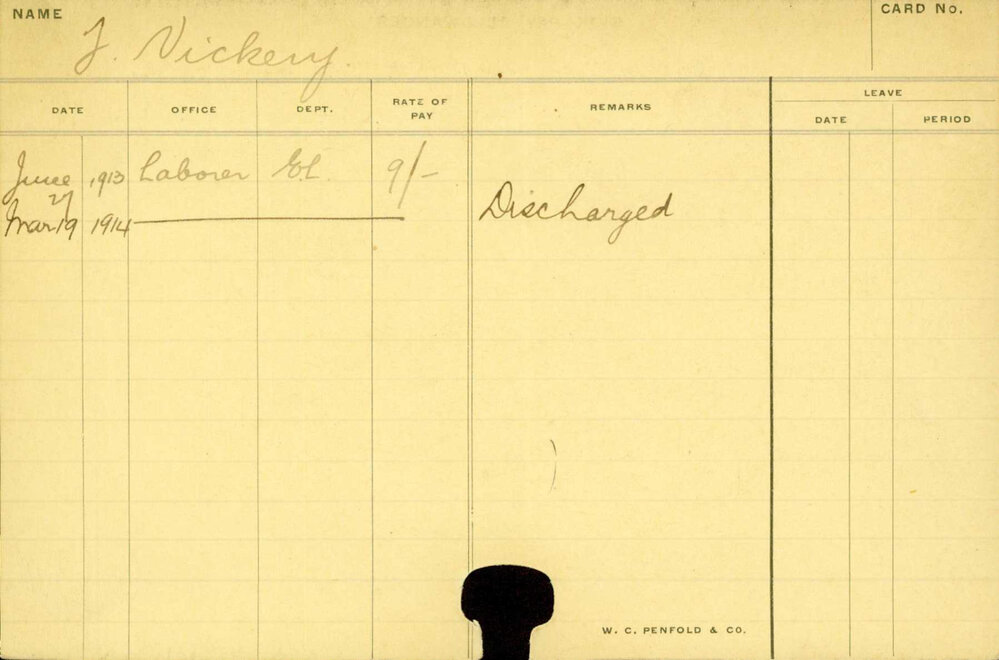 NAME
CARD No.
J. Vickery.
DATE OFFICE DEPT. RATE OF PAY REMARKS LEAVE
DATE PERIOD
June 27 1913 Laborer E.L. 9/-
Mar 19 1914 Discharged
W. C. PENFOLD & CO.